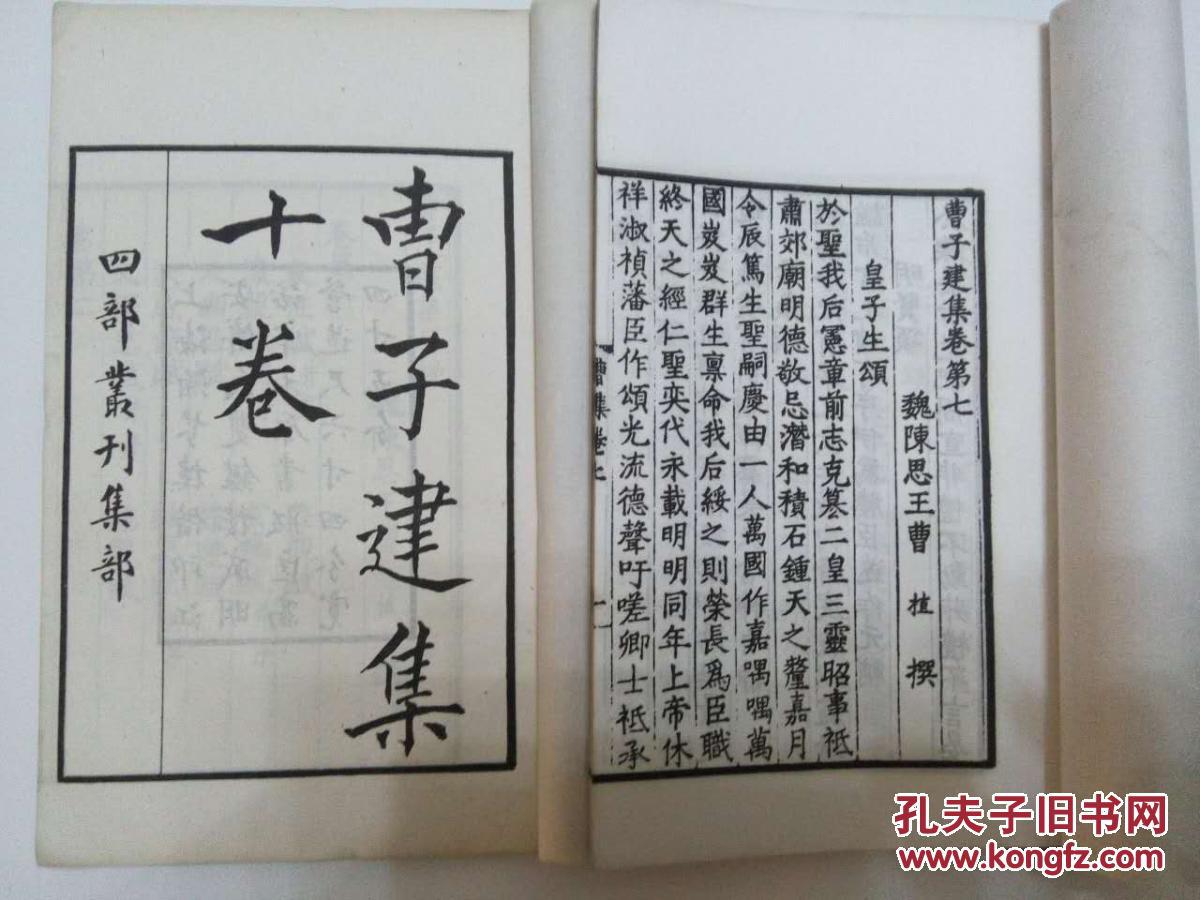 曹子建集
十卷
四部叢刊集部
曹子建集卷第七
魏陳思王曹 植 撰
皇子生頌
於聖我后憲章前志克纂二皇三靈昭事祗
肅郊廟明德敬忌潛和積石鍾天之釐嘉月
令辰篤生聖嗣慶由一人萬國作嘉喁喁萬
國岌岌群生禀命我后綏之則榮長爲臣職
終天之經仁聖奕代永載明明同年上帝休
祥淑禎藩臣作頌光流德聲吁嗟卿士祗承
曹集卷七
一
孔夫子旧书网
www.kongfz.com